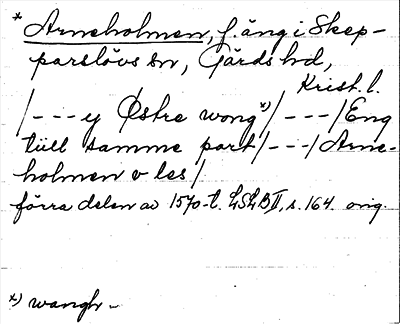 * Arneholmen, f. äng i Skep-
parslövs sn, Gärds hd,
Krist. l.
/---y Østre wong*)/---/Eng
tüll samme part/---/Arne-
holmen v les/
förra delen av 1570-t. LSLB II, s. 164. orig.
*) wangh-